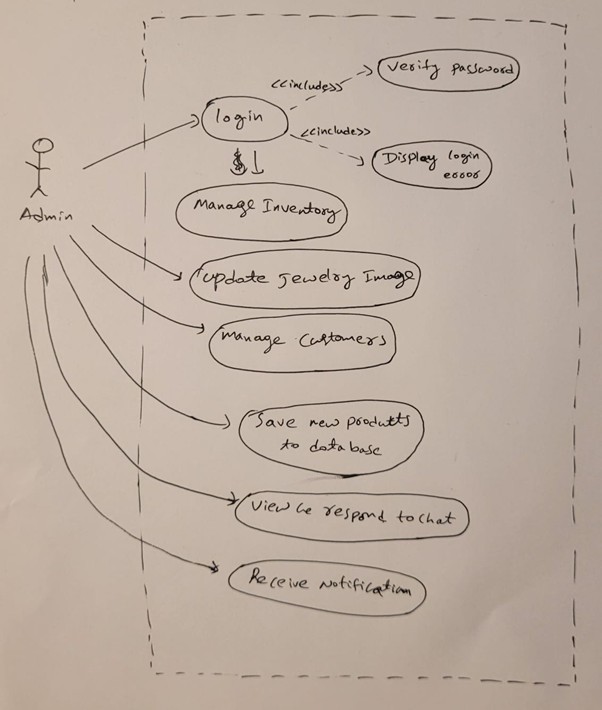 verify password
<<include>>
login
<<include>>
Display login
error
Admin
Manage Inventory
update jewelry Image
Manage Customers
Save new products
to database
View & respond to chat
Receive Notification